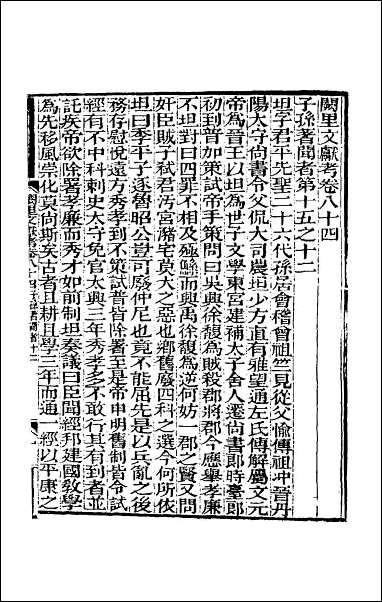 闕里文獻考卷八十四
子孫著聞者第十五之十二
坦字君平先聖二十六代孫居會稽曾祖竺見從父愉傳祖沖晉丹
陽太守尚書令父侃大司農坦少方直有雅望通左氏傳解屬文元
帝為晉王以坦為世子文學東宮建補太子舍人遷尚書郎時臺郎
初到普加策試帝手策問曰吳興徐馥為賊殺郡將郡今應舉孝廉
不坦對曰四罪不相及殛鯀而興禹徐馥為逆何妨一郡之賢又問
奸臣賊子弒君汚宮瀦宅莫大之惡也鄉舊廢四科之選今何所依
坦曰季平子逐魯昭公豈可廢仲尼也竟不能屈先是以兵亂之後
務存慰悅遠方秀孝到不策試普皆除署至是帝申明舊制皆令試
經有不中科刺史太守免官太興三年秀孝多不敢行其有到者並
託疾帝欲除署孝廉而秀才如前制坦奏議曰臣聞經邦建國敎學
為先移風崇化莫尚斯矣古者且耕且學三年而通一經以平康之
闕里文獻考卷八十四